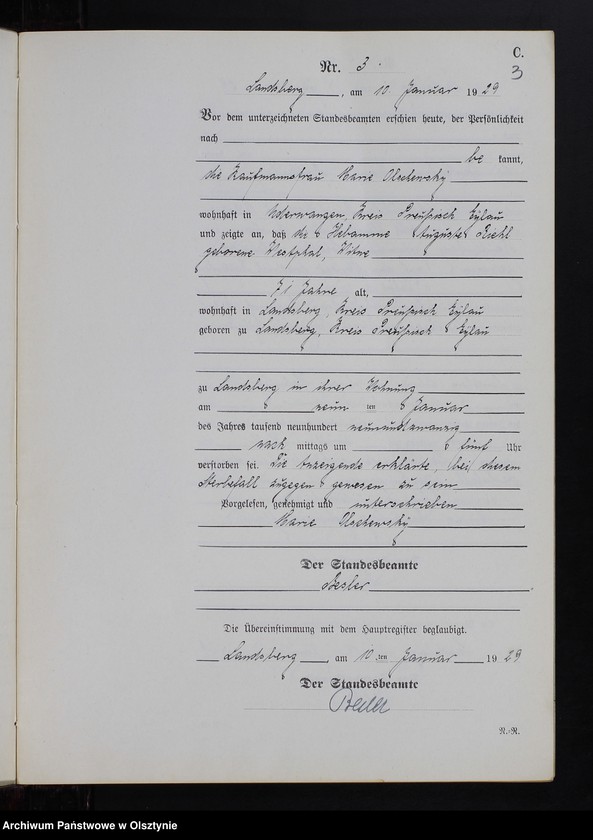 C.
Nr. 3.
3
Landsberg, am 10 Januar 1929
Vor dem unterzeichneten Standesbeamten erschien heute, der Persönlichkeit
nach
be kannt,
die Kaufmannsfrau Marie Olschewsky
wohnhaft in Uderwangen, Kreis Preußisch Eylau
und zeigte an, daß die Hebamme Auguste
geborene Westphal, Witwe
71 Jahre alt,
wohnhaft in Landsberg, Kreis Preußisch Eylau
geboren zu Landsberg, Kreis Preußisch Eylau
zu Landsberg in ihrer Wohnung
am neun ten Januar
des Jahres tausend neunhundert neunundzwanzig
nach mittags um fünf Uhr
verstorben sei. Die Anzeigende erklärte, bei diesem
Sterbefall zugegen gewesen zu sein
Vorgelesen, genehmigt und unterschrieben
Marie Olschewsky
Der Standesbeamte
Die Übereinstimmung mit dem Hauptregister beglaubigt.
Landsberg, am 10 ten Januar 1929
Der Standesbeamte
R.-R.
Archiwum Państwowe w Olsztynie